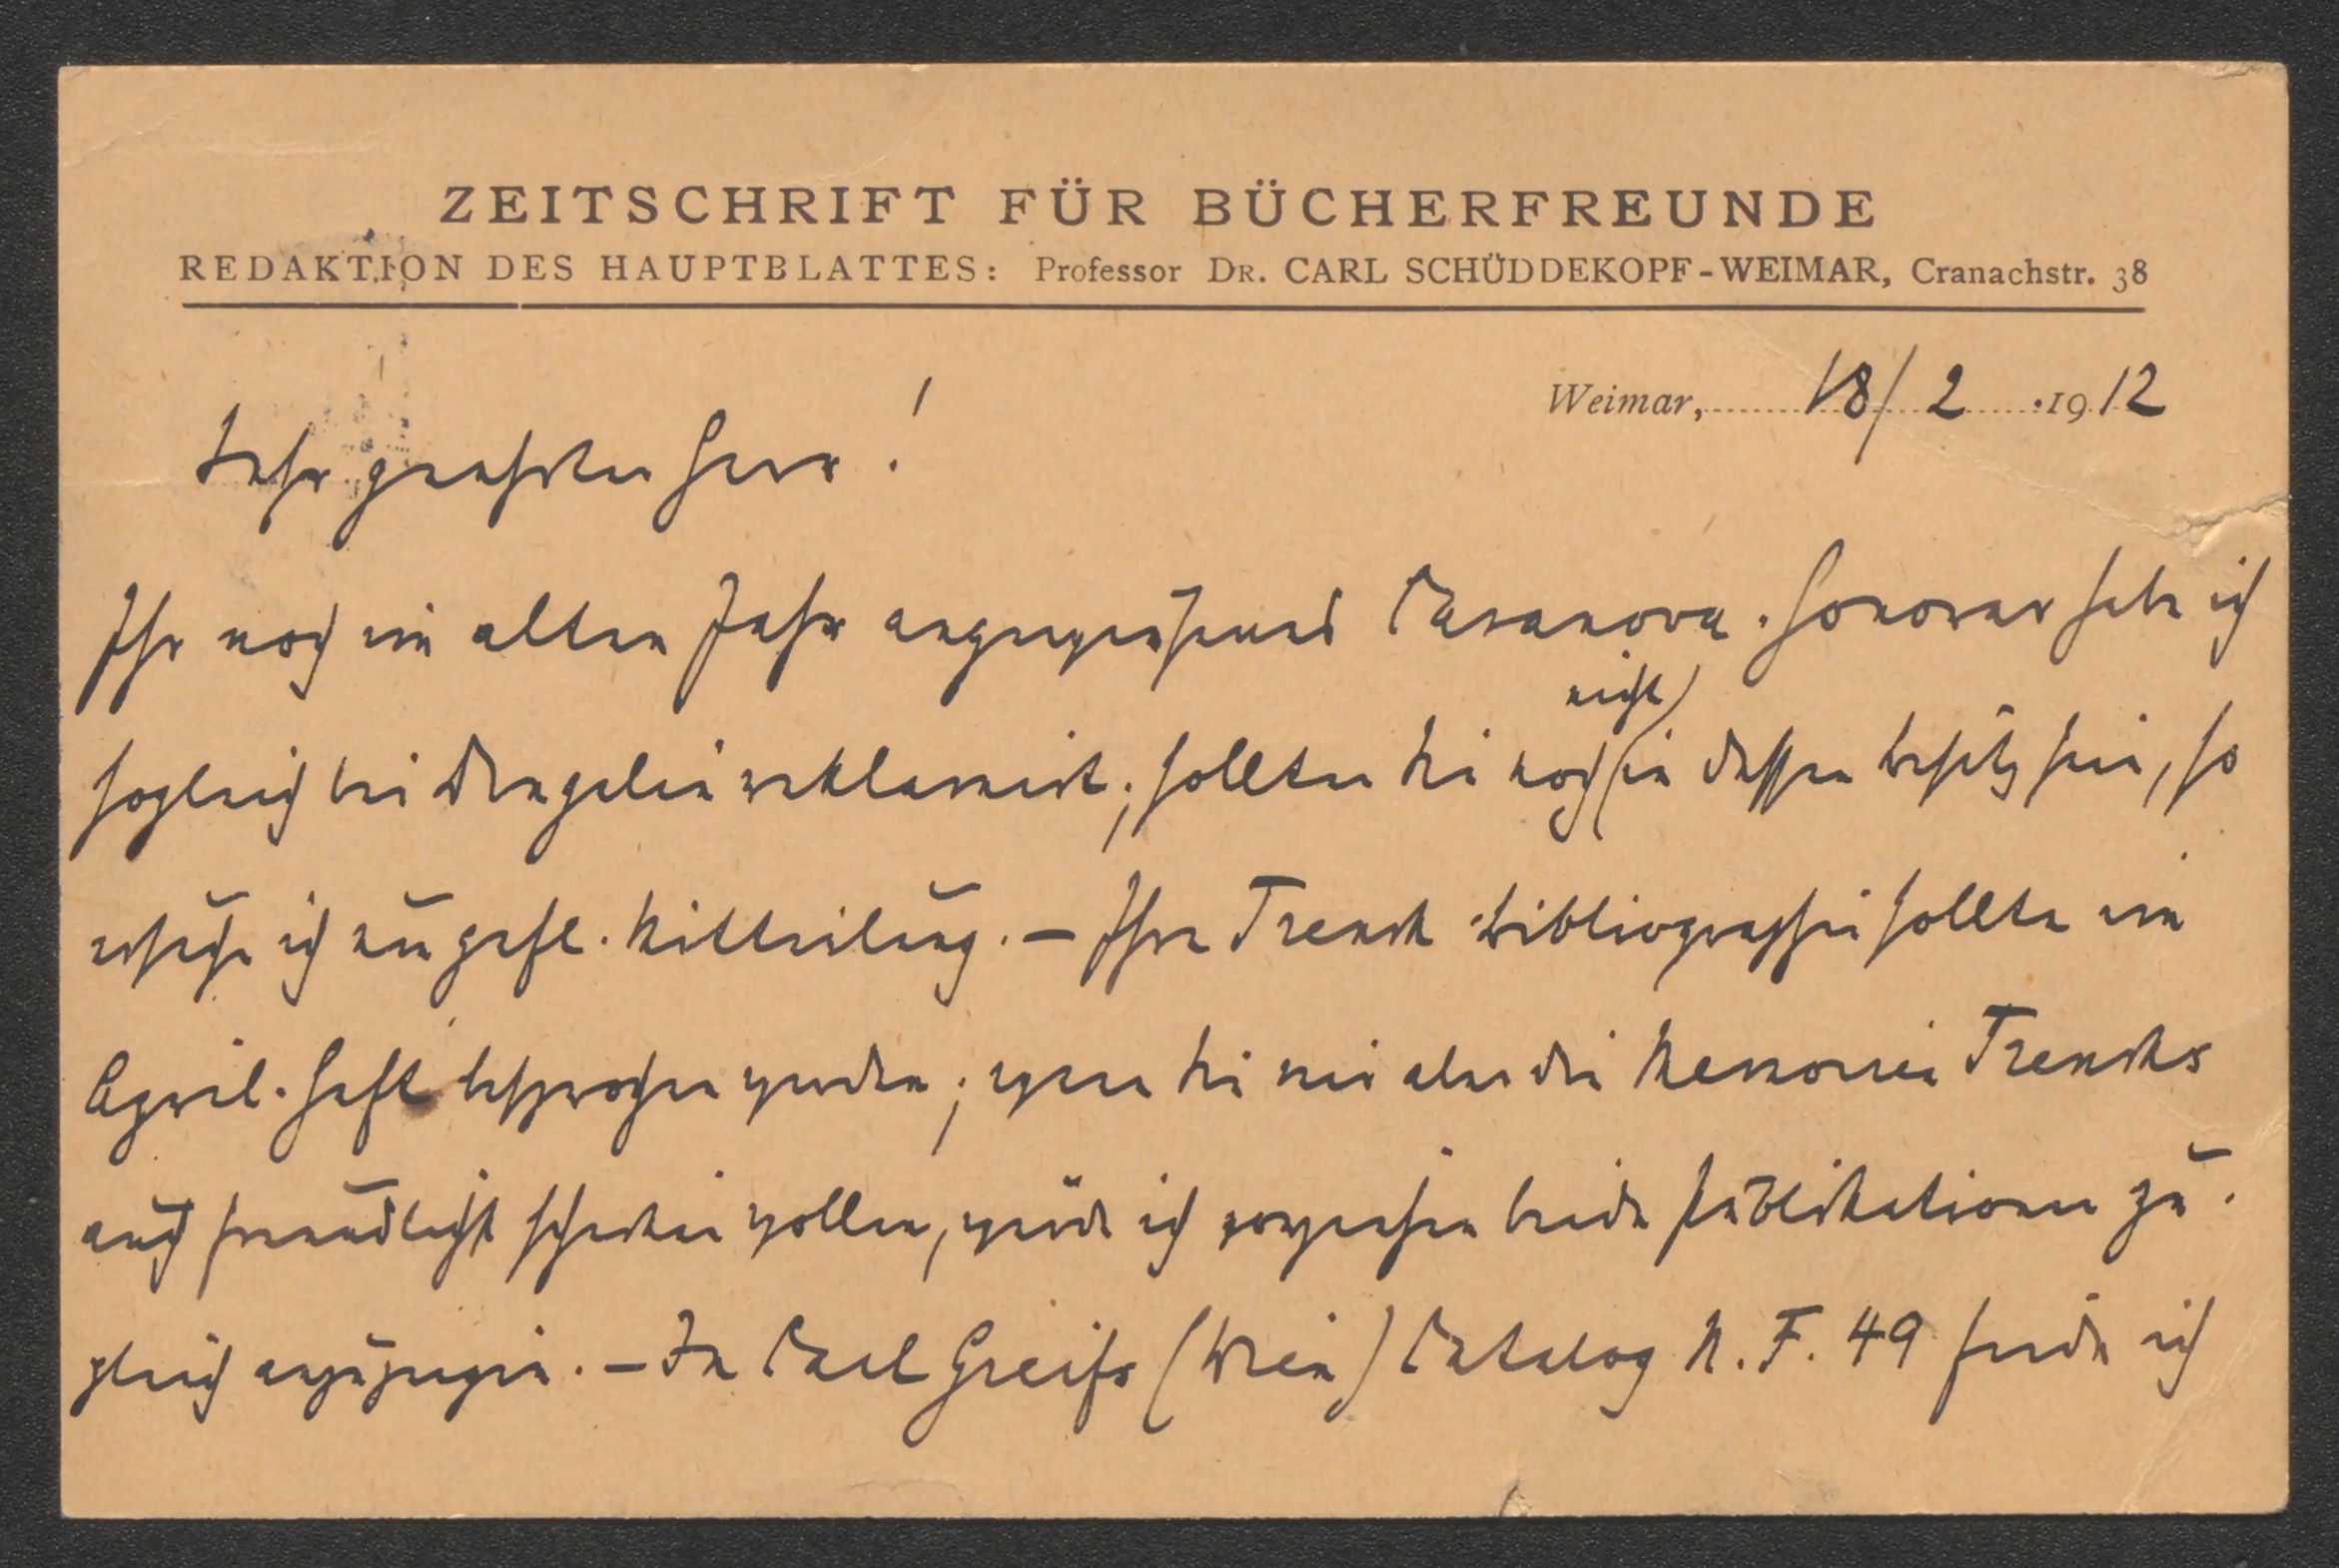 ZEITSCHRIFT FÜR BÜCHERFREUNDE
REDAKTION DES HAUPTBLATTES: Professor DR. CARL SCHÜDDEKOPF-WEIMAR, Cranachstr. 38
Weimar, 18/2 1912
Sehr geehrter Herr!
Ihr noch im alten Jahr angewiesenes Casanova-Honorar habe ich
nicht
sogleich bei reklamiert; sollten Sie noch in dessen Besitz sein, so
ersuche ich um gefl. Mitteilung. – Ihre Trenck Bibliographie sollte im
April-Heft besprochen werden; wenn Sie mir aber die Memoiren Trencks
auch freundlichst schicken wollen, würde ich vorziehen beide Publikationen zu-
gleich anzuzeigen. – In Carl Greifs (Wien) Catalog N. F. 49 finde ich